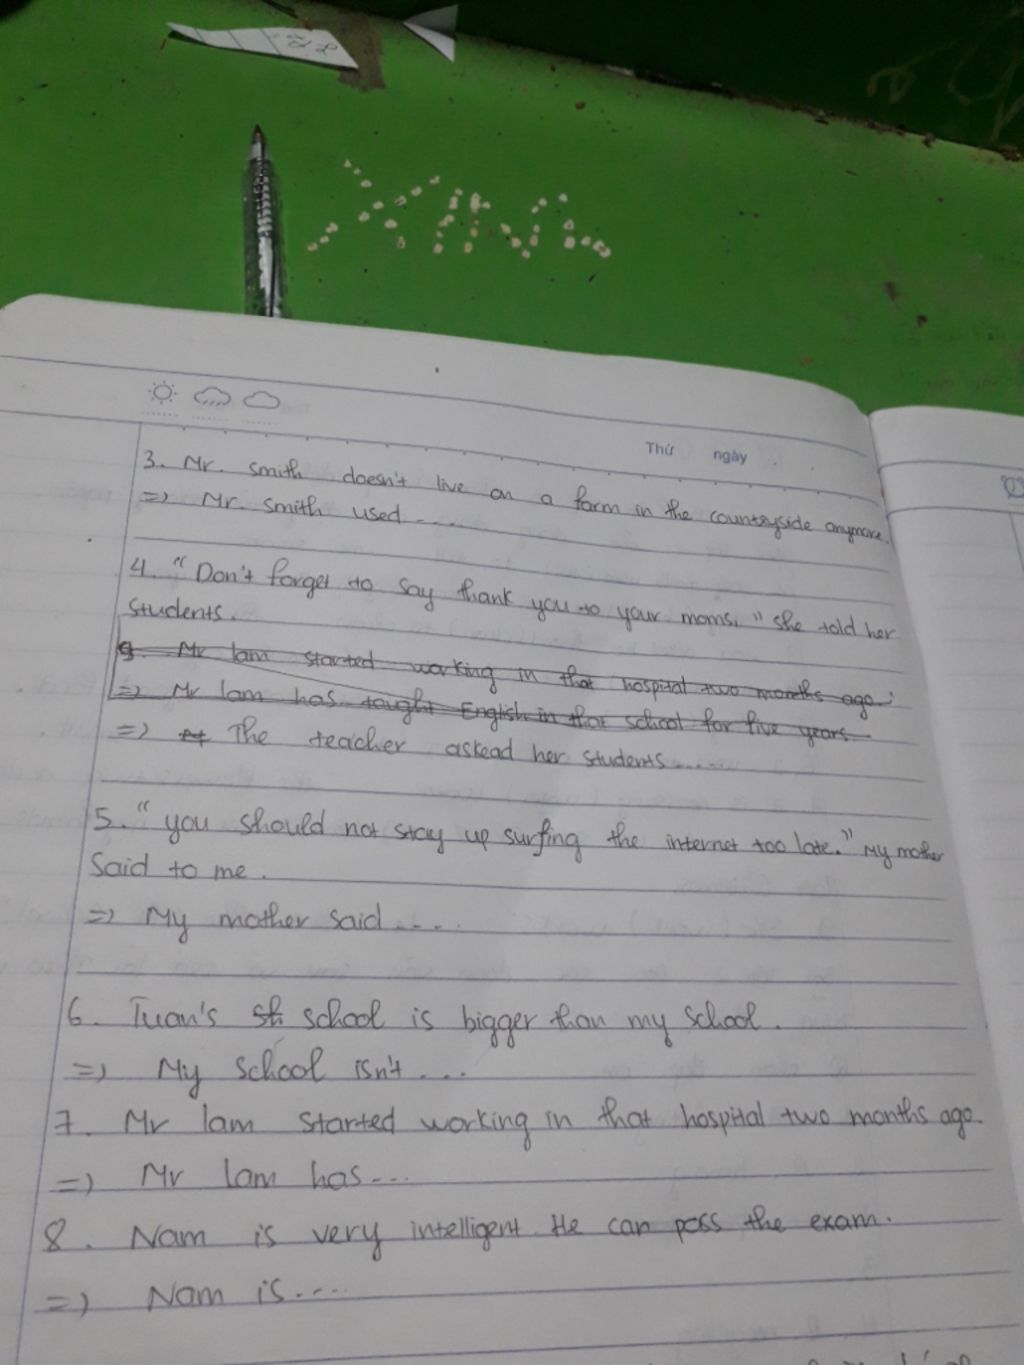 XINh
Thứ ngày
3. Mr. smith doesn't live on a farm in the countryside anymore.
=> Mr. smith used ....
4. "Don't forget to say thank you to your moms." she told her
students.
9. Mr lam started working in that hospital two months ago.
=> Mr lam has taught English in that school for five years.
=> The teacher askead her students.....
5. "you should not stay up surfing the internet too late." My mother
Said to me.
=> My mother said....
6. Tuan's sh school is bigger than my school.
=> My school isn't ...
7. Mr lam started working in that hospital two months ago.
=> Mr lam has...
8. Nam is very intelligent. He can pass the exam.
=> Nam is....